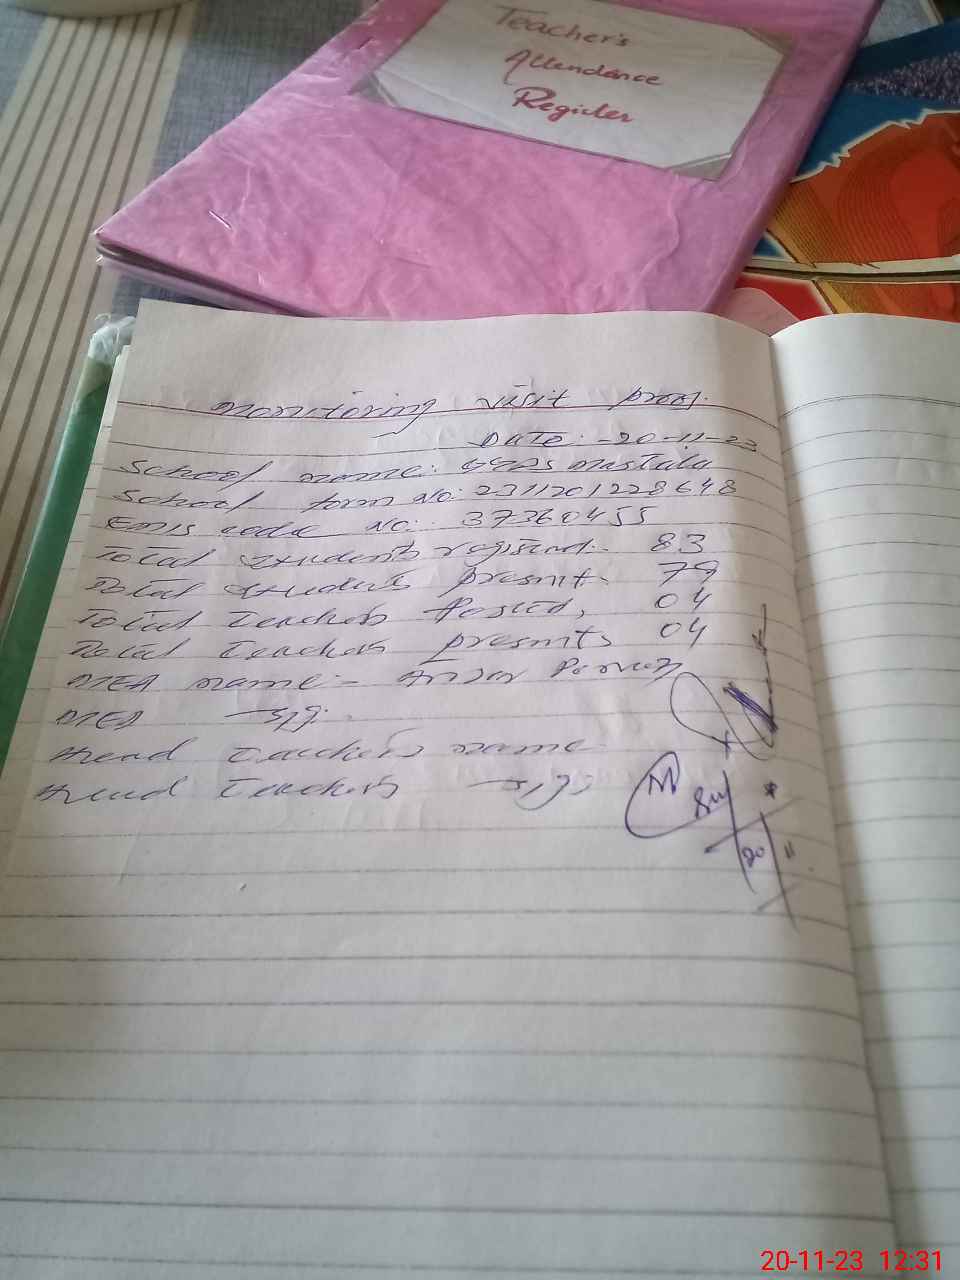 Teacher's
Attendance
Register
Monitoring visit prog.
Date: -20-11-23
School name: GGPS Mastala
School form No: 2311201228648
EMIS code No: 37360455
Total students
Total students present. 79
Total Teachers Posted, 04
Total Teachers presents 04
MEA name:-
MEA sig:
Head Teachers name
Head Teachers sig:
20
11
20-11-23 12:31